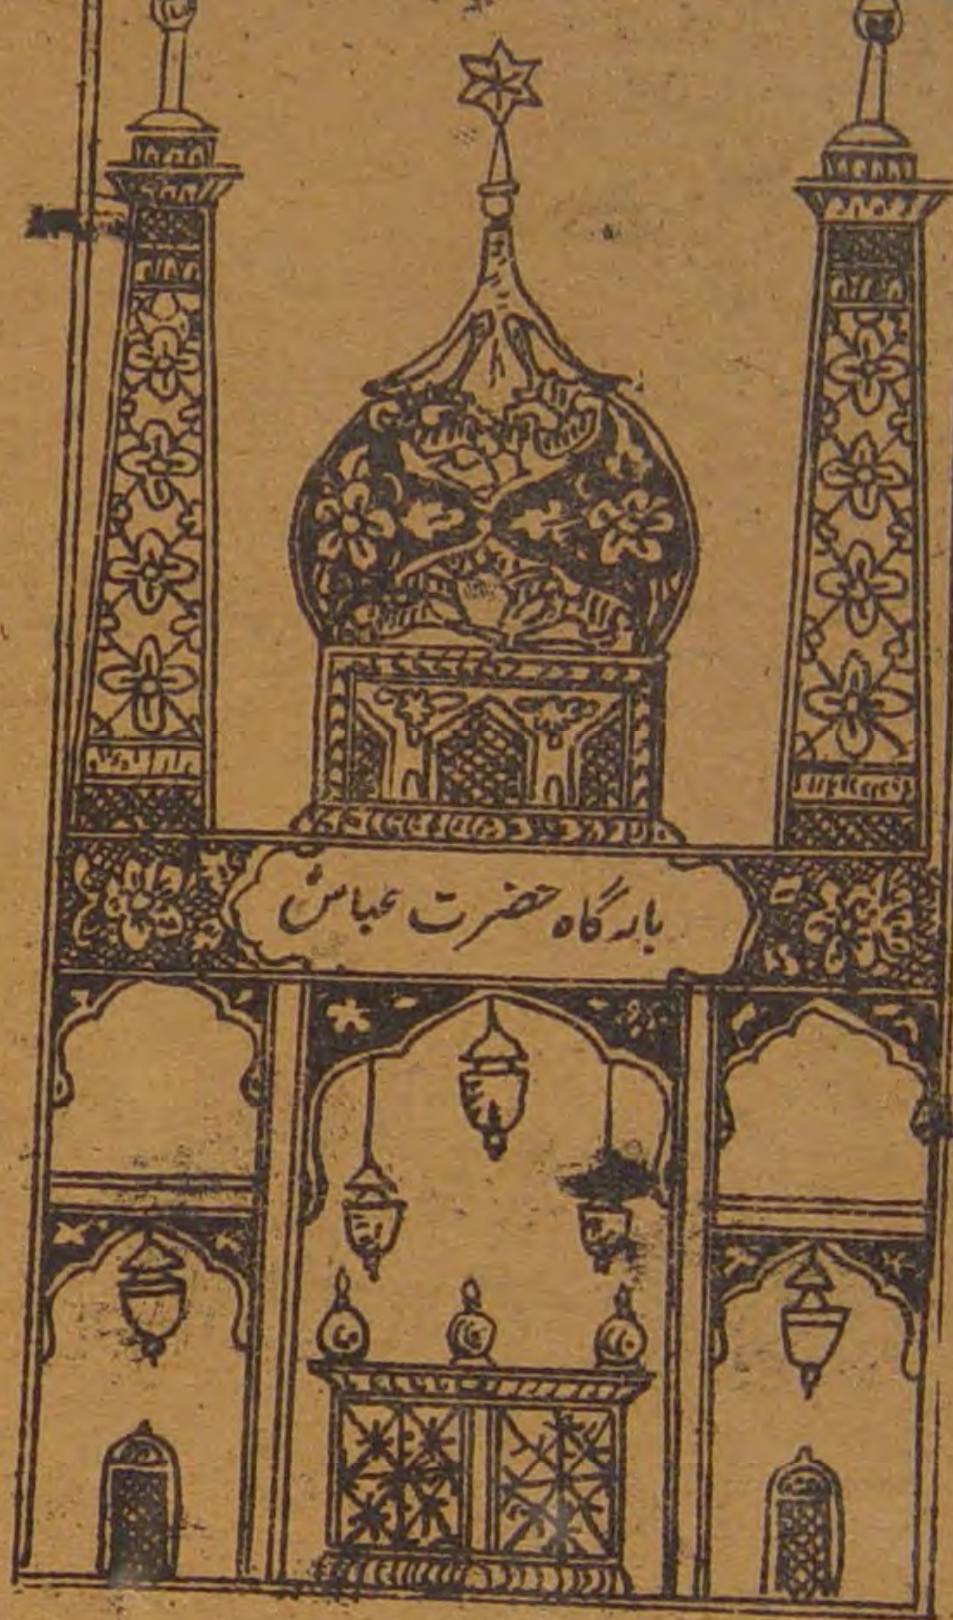 بارگاہ حضرت عباس